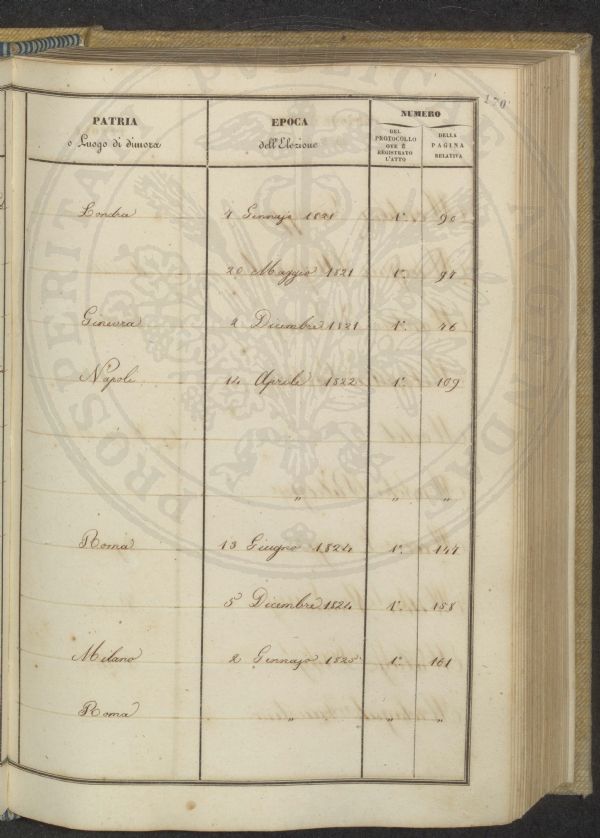 170
PATRIA
o Luogo di dimora
EPOCA
dell'Elezione
NUMERO
DEL
PROTOCOLLO
OVE È
REGISTRATO
L'ATTO
DELLA
PAGINA
RELATIVA
Londra 1 Gennajo 1821 1º. 90
20 Maggio 1821 1º. 94
Ginevra 2 Dicembre 1821 1º. 46
Napoli 14 Aprile 1822 1º. 109
" " "
Roma 13 Giugno 1824 1º. 147
5 Dicembre 1824 1º. 158
Milano 2 Gennajo 1825 1º. 161
Roma " " "